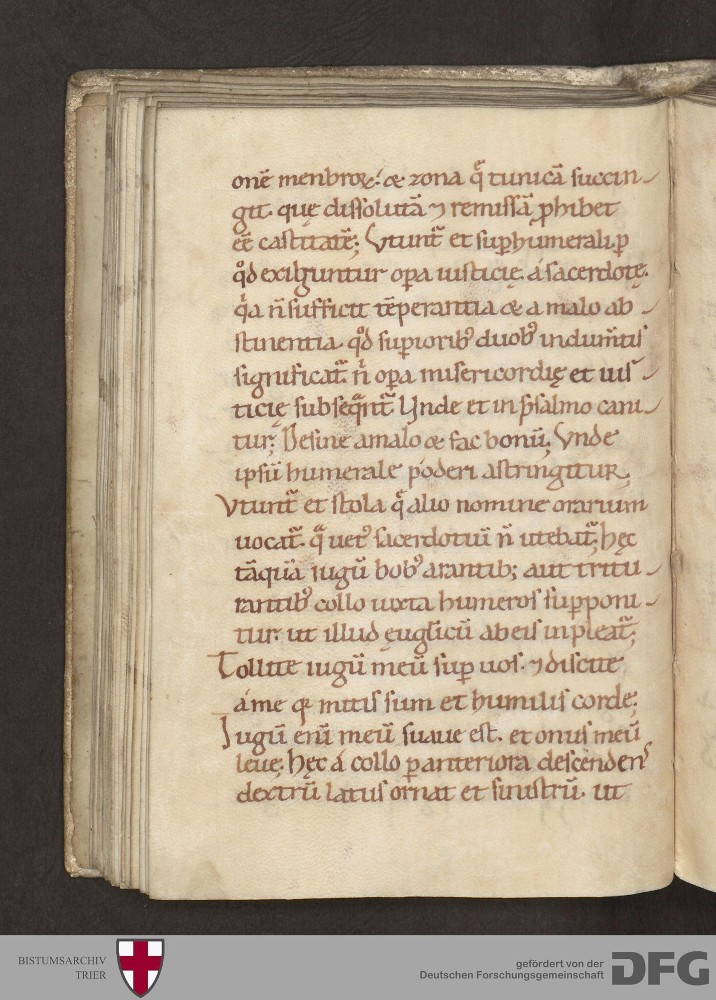 onē menbroꝝ. & zona q̄ tunicā succin-
git. quę dissolutā ⁊ remissā ꝓhibet
eē castitatē; Vtunt᷑ et suꝑhumerali. ꝑ
qđ exibguntur oꝑa iusticię. á sacerdotę.
q̇a n̄ sufficit tēperantia & a malo ab-
stinentia. qđ supiorib᷒ duob᷒ indum̄tis
significat᷑. n̄ oꝑa misericordię et ius-
ticię subseq̄nt᷑ Vnde et in psalmo cani-
tur; Desine a malo & fac bonū; Vnde
ipsū humerale poderi astringitur.
Vtunt᷑ et stola q̄ alio nomine orarium
uocat᷑. q̄ uet᷒ sacerdotuī n̄ utebat᷑; hęc
tāquā iugū bob᷒ arantib; aut tritu-
rantib᷒ collo iuxta humeros suꝑponi-
tur. ut illud ęuglicū ab eis inpleat᷑;
Tollite iugū meū suꝑ uos. ⁊ discite
á me qꝛ mitis sum et humilis corde;
Iugū enī meū suaue est. et onus meū
leue; hęc á collo ꝑ anteriora descendens
dextrū latus ornat et sinistrū. ut
BISTUMSARCHIV
TRIER
gefördert von der
Deutschen Forschungsgemeinschaft
DFG